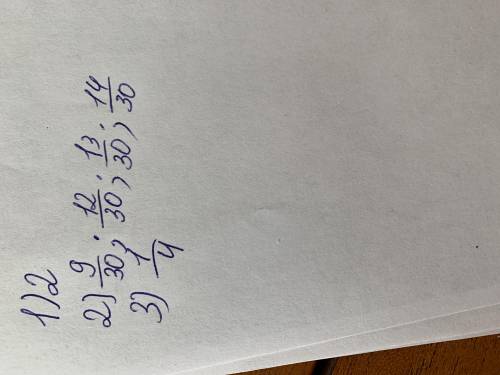 1) 2
2) 9/30; 12/30; 13/30; 14/30
3) 1/4